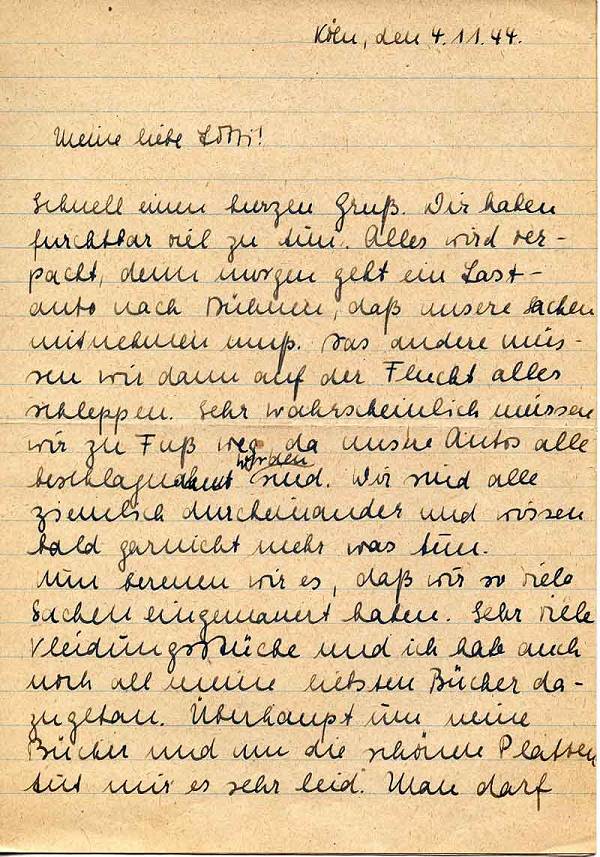 Köln, den 4.11.44.
Meine liebe Lotti!
Schnell einen kurzen Gruß. Wir haben
furchtbar viel zu tun. Alles wird ver-
packt, denn morgen geht ein Last-
auto nach, daß unsere Sachen
mitnehmen muß. Das andere müs-
sen wir dann auf der Flucht alles
schleppen. Sehr wahrscheinlich müssen
wir zu Fuß weg da unsre Autos alle
beschlagnahmt worden sind. Wir sind alle
ziemlich durcheinander und wissen
bald garnicht mehr was tun.
Nun bereuen wir es, daß wir so viele
Sachen eingemauert haben. Sehr viele
Kleidungsstücke und ich habe auch
noch all meine liebsten Bücher da-
zugetan. Überhaupt um meine
Bücher und um die schönen Platten
tut mir es sehr leid. Man darf